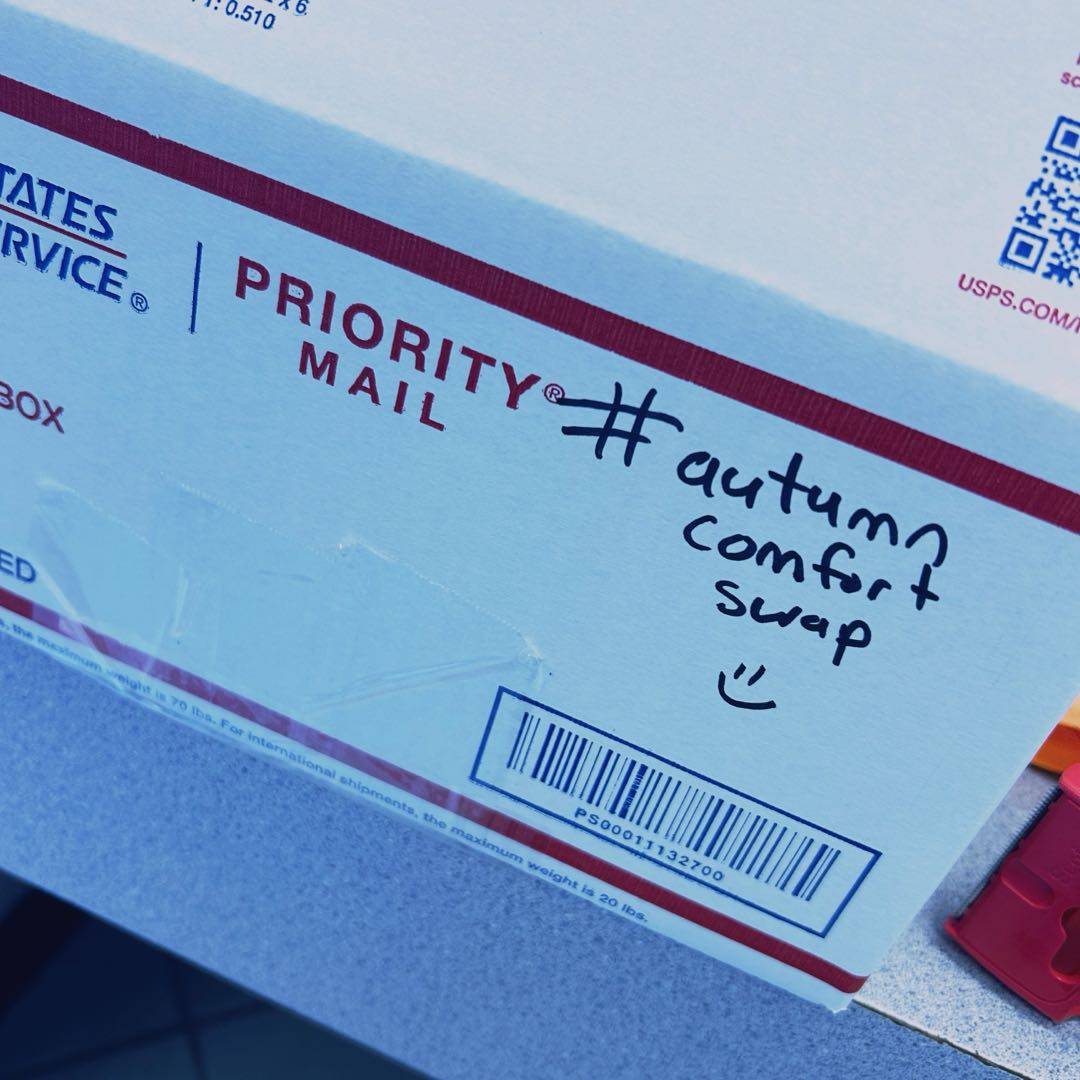 x 6
: 0.510
TATES
RVICE®
PRIORITY®
MAIL
BOX
ED
#autumn
comfort
swap
PS00011132700
the maximum weight is 70 lbs. For international shipments, the maximum weight is 20 lbs.
USPS.COM/